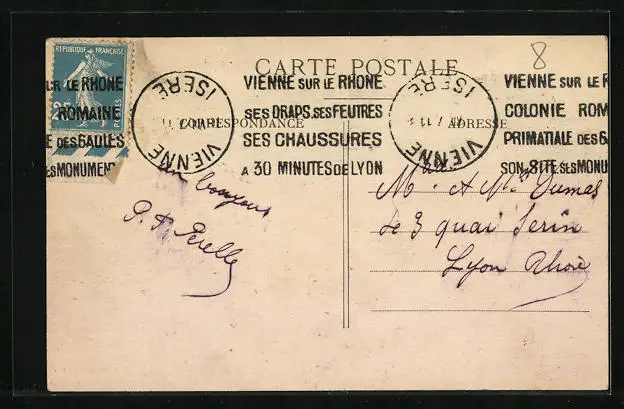 8
REPUBLIQUE FRANÇAISE
25
POSTES
CARTE POSTALE
CORRESPONDANCE
ADRESSE
UR LE RHONE
ROMAINE
E DES GAULES
ES MONUMENT
VIENNE
ISERE
VIENNE SUR LE RHONE
SES DRAPS. SES FEUTRES
SES CHAUSSURES
A 30 MINUTES DE LYON
VIENNE
ISERE
VIENNE SUR LE R
COLONIE ROM
PRIMATIALE DES G
SON SITE. SES MONU
un bonjour
M. et Mme Dumas
3 quai Serin
Lyon Rhône